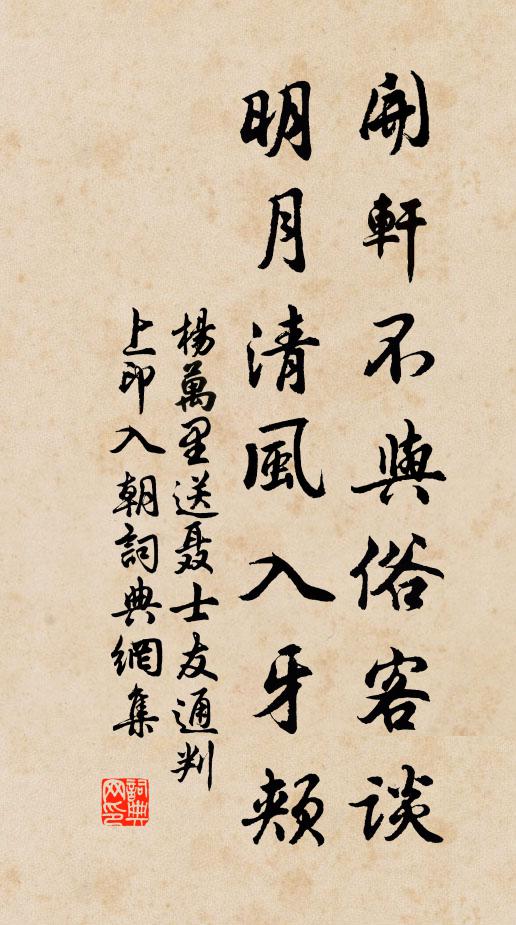 開軒不與俗客談
明月清風入牙頰
楊萬里送聶士友通判
上印入朝詞典網集
詞典
网印